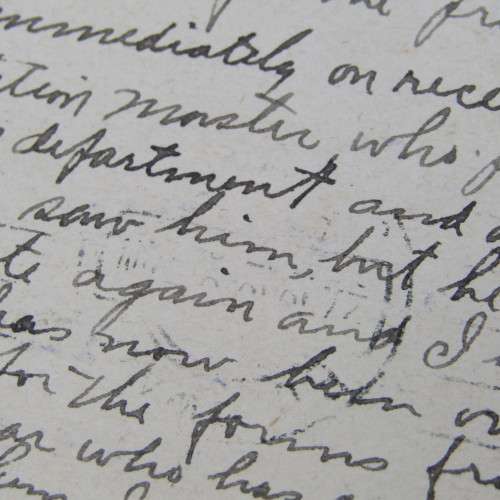 the fr
immediately on rece
ition master who
department and a
saw him, but he
te again and I
has now been ou
for the forms fr
ar who has